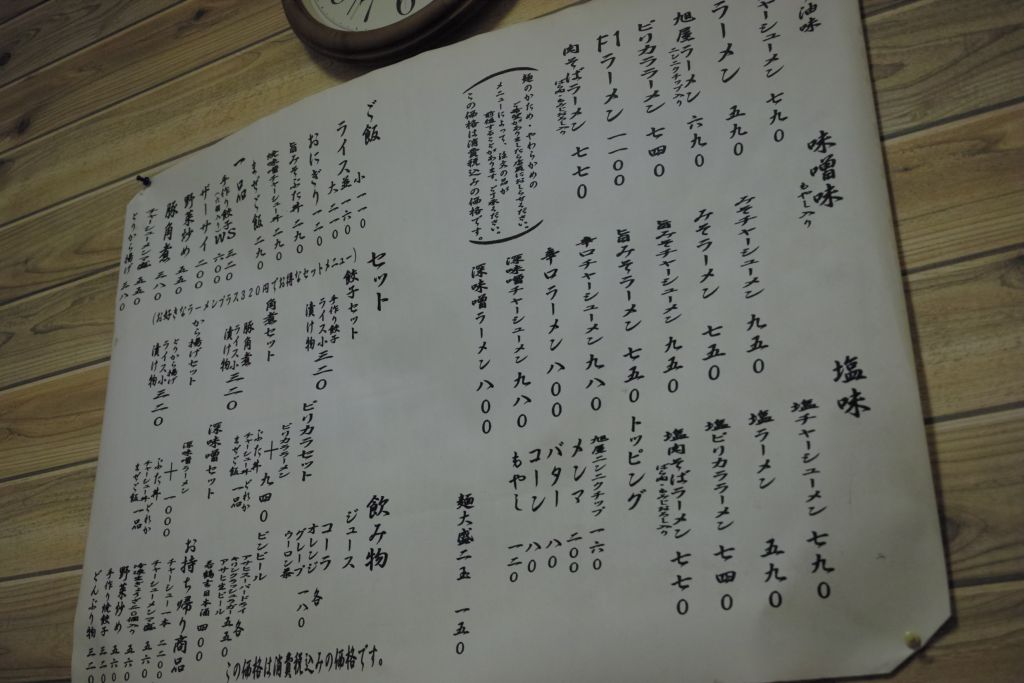 油味
チャーシューメン 七九〇
ラーメン 五九〇
旭屋ラーメン 六九〇
ニンニクチップ入り
ピリカララーメン 七四〇
F1ラーメン 一一〇〇
肉そばラーメン 七七〇
麺のかため・やわらかめの
ご希望がありましたら店員におしらせください。
メニューによって、注文の品が
前後することがあります。ご了承ください。
この価格は消費税込みの価格です。
味噌味
もやし入り
みそチャーシューメン 九五〇
みそラーメン 七五〇
旨みそチャーシューメン 九五〇
旨みそラーメン 七五〇
辛口チャーシューメン 九八〇
辛口ラーメン 八〇〇
深味噌チャーシューメン 九八〇
深味噌ラーメン 八〇〇
塩味
塩チャーシューメン 七九〇
塩ラーメン 五九〇
塩ピリカララーメン 七四〇
塩肉そばラーメン 七七〇
トッピング
旭屋ニンニクチップ 一六〇
メンマ 二〇〇
バター 八〇
コーン 八〇
もやし 一二〇
麺大盛二五 一五〇
ご飯
ライス並 一六〇
小 一一〇
大 二一〇
おにぎり 一二〇
旨みそぶた丼 二九〇
チャーシュー丼 二九〇
まぜご飯 二九〇
一品
手作り餃子 三二〇
WS 六〇〇
ザーサイ 二〇〇
野菜炒め 五五〇
豚角煮 三八〇
チャーシューメンマ盛 五五〇
とりから揚げ 三八〇
セット
(お好きなラーメンプラス320円でお得なセットメニュー)
餃子セット
手作り餃子
ライス小 三二〇
漬け物
角煮セット
豚角煮
ライス小 三二〇
漬け物
から揚げセット
とりから揚げ
ライス小 三二〇
漬け物
ピリカラセット
ピリカララーメン
＋ 九四〇
ぶた丼
チャーシュー丼 どれか
まぜご飯 一品
深味噌セット
深味噌ラーメン
＋ 一〇〇〇
ぶた丼
チャーシュー丼 どれか
まぜご飯 一品
飲み物
ジュース
コーラ
オレンジ 各
グレープ 一八〇
ウーロン茶
ビンビール
アサヒスーパードライ
キリンクラシックラガー 各
アサヒ生ビール 五五〇
吉日本酒 四〇〇
お持ち帰り商品
チャーシュー一本 二二〇〇
チャーシューメンマ盛 五六〇
野菜炒め 五六〇
手作り焼餃子 三二〇
どんぶり物 三二〇
この価格は消費税込みの価格です。